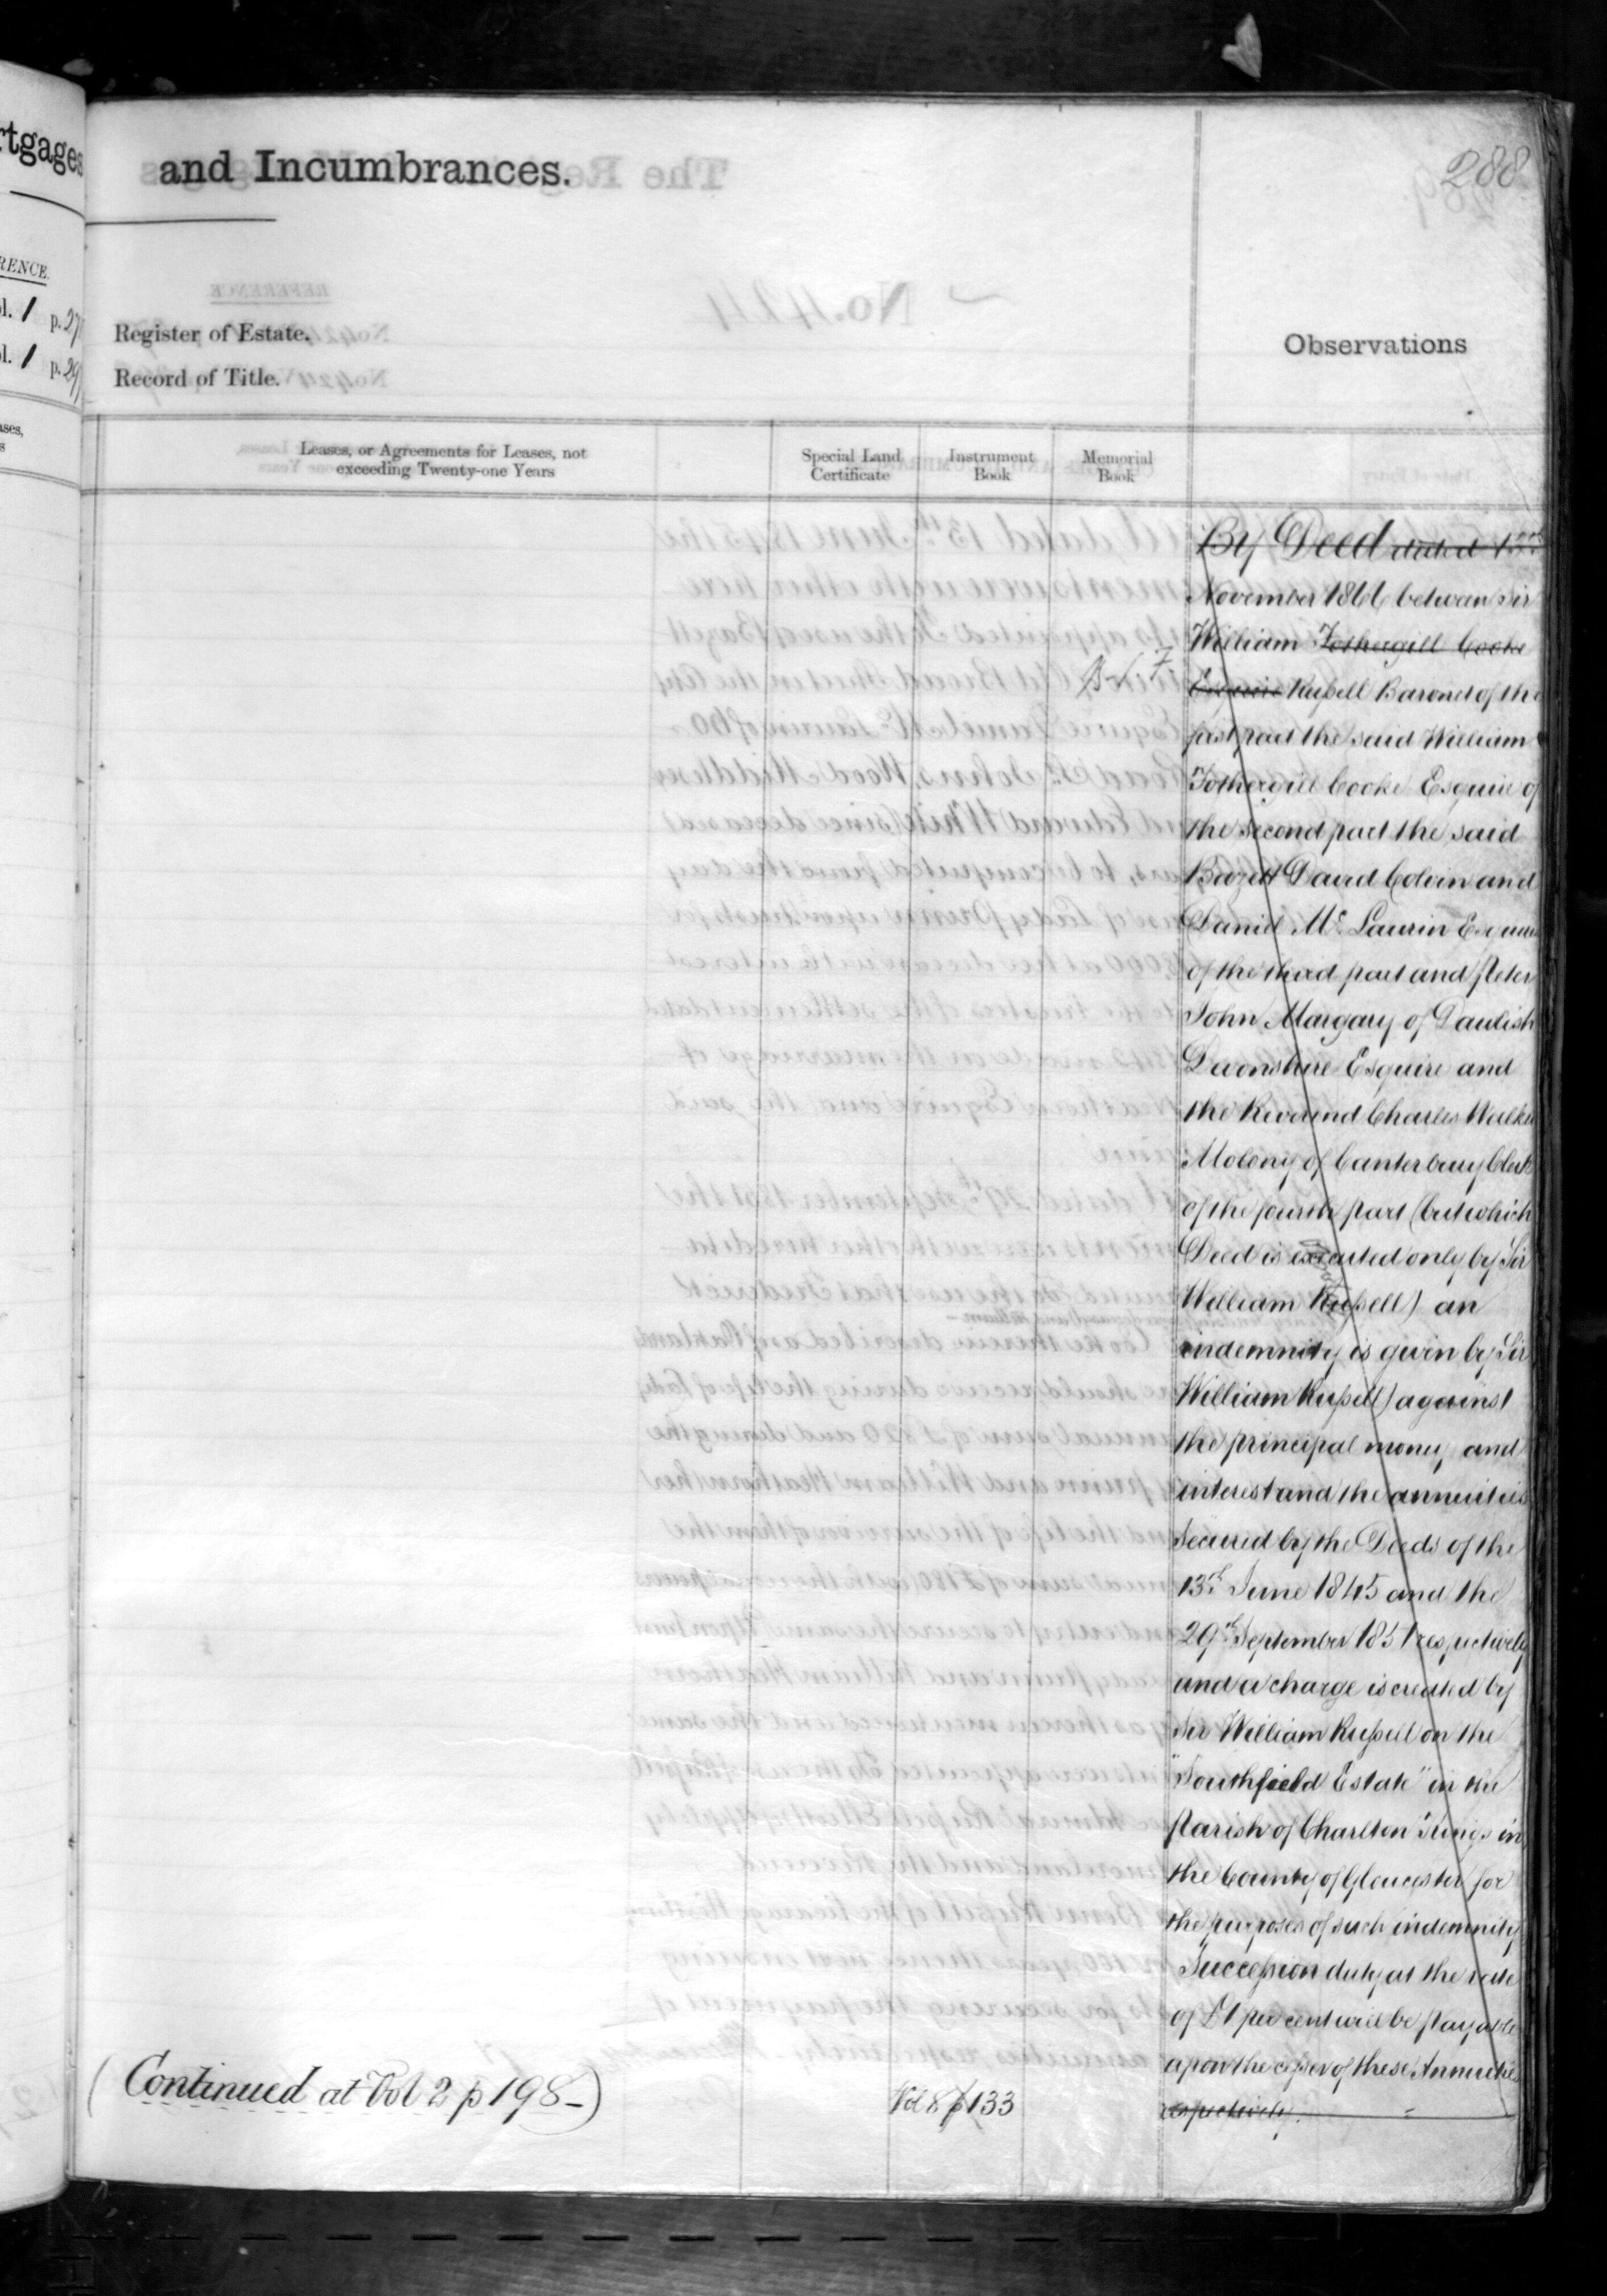 rtgages
and Incumbrances.
288
RENCE.
ol. 1 p. 27
ol. 1 p. 29
Register of Estate.
Record of Title.
Observations
ases,
s
Leases, or Agreements for Leases, not
exceeding Twenty-one Years
Special Land
Certificate
Instrument
Book
Memorial
Book
By Deed dated 1st
November 1866 between Sir
William Fothergill Cooke
Esquire Russell Baronet of the
first part the said William
Fothergill Cooke Esquire of
the second part the said
Bazett David Colvin and
Daniel Mc Laurin Esquires
of the third part and Peter
John Margary of Dawlish
Devonshire Esquire and
the Reverend Charles Walker
Molony of Canterbury Clerk
of the fourth part (but which
Deed is executed only by Sir
William Russell) an
indemnity is given by Sir
William Russell) against
the principal money and
interest and the annuities
secured by the Deeds of the
13th June 1845 and the
29th September 1851 respectively
and a charge is created by
Sir William Russell on the
"Southfield Estate" in the
Parish of Charlton Kings in
the County of Gloucester for
the purposes of such indemnity
Succession duty at the rate
of £1 per cent will be payable
upon the cesser of these Annuities
respectively.
(Continued at Vol 2 p 198-)
Vol 8 p 133